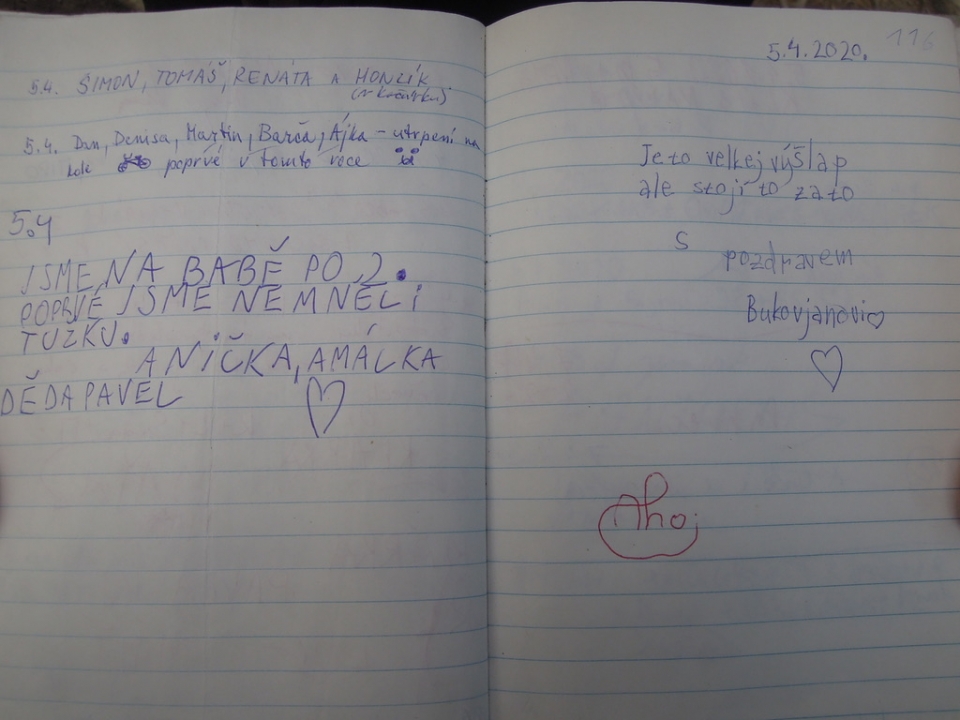 5.4. ŠIMON, TOMÁŠ, RENÁTA A HONZÍK
(v kočárku)
5.4. Dan, Denisa, Martin, Barča, Ájka - utrpení na
kole poprvé v tomto roce
5.4
JSME NA BABĚ PO 2.
POPRVÉ JSME NEMNĚLI
TUŽKU.
ANIČKA, AMÁLKA
DĚDA PAVEL
116
5.4.2020.
Je to velkej výšlap
ale stojí to zato
S pozdravem
Bukovjanovi
Ahoj